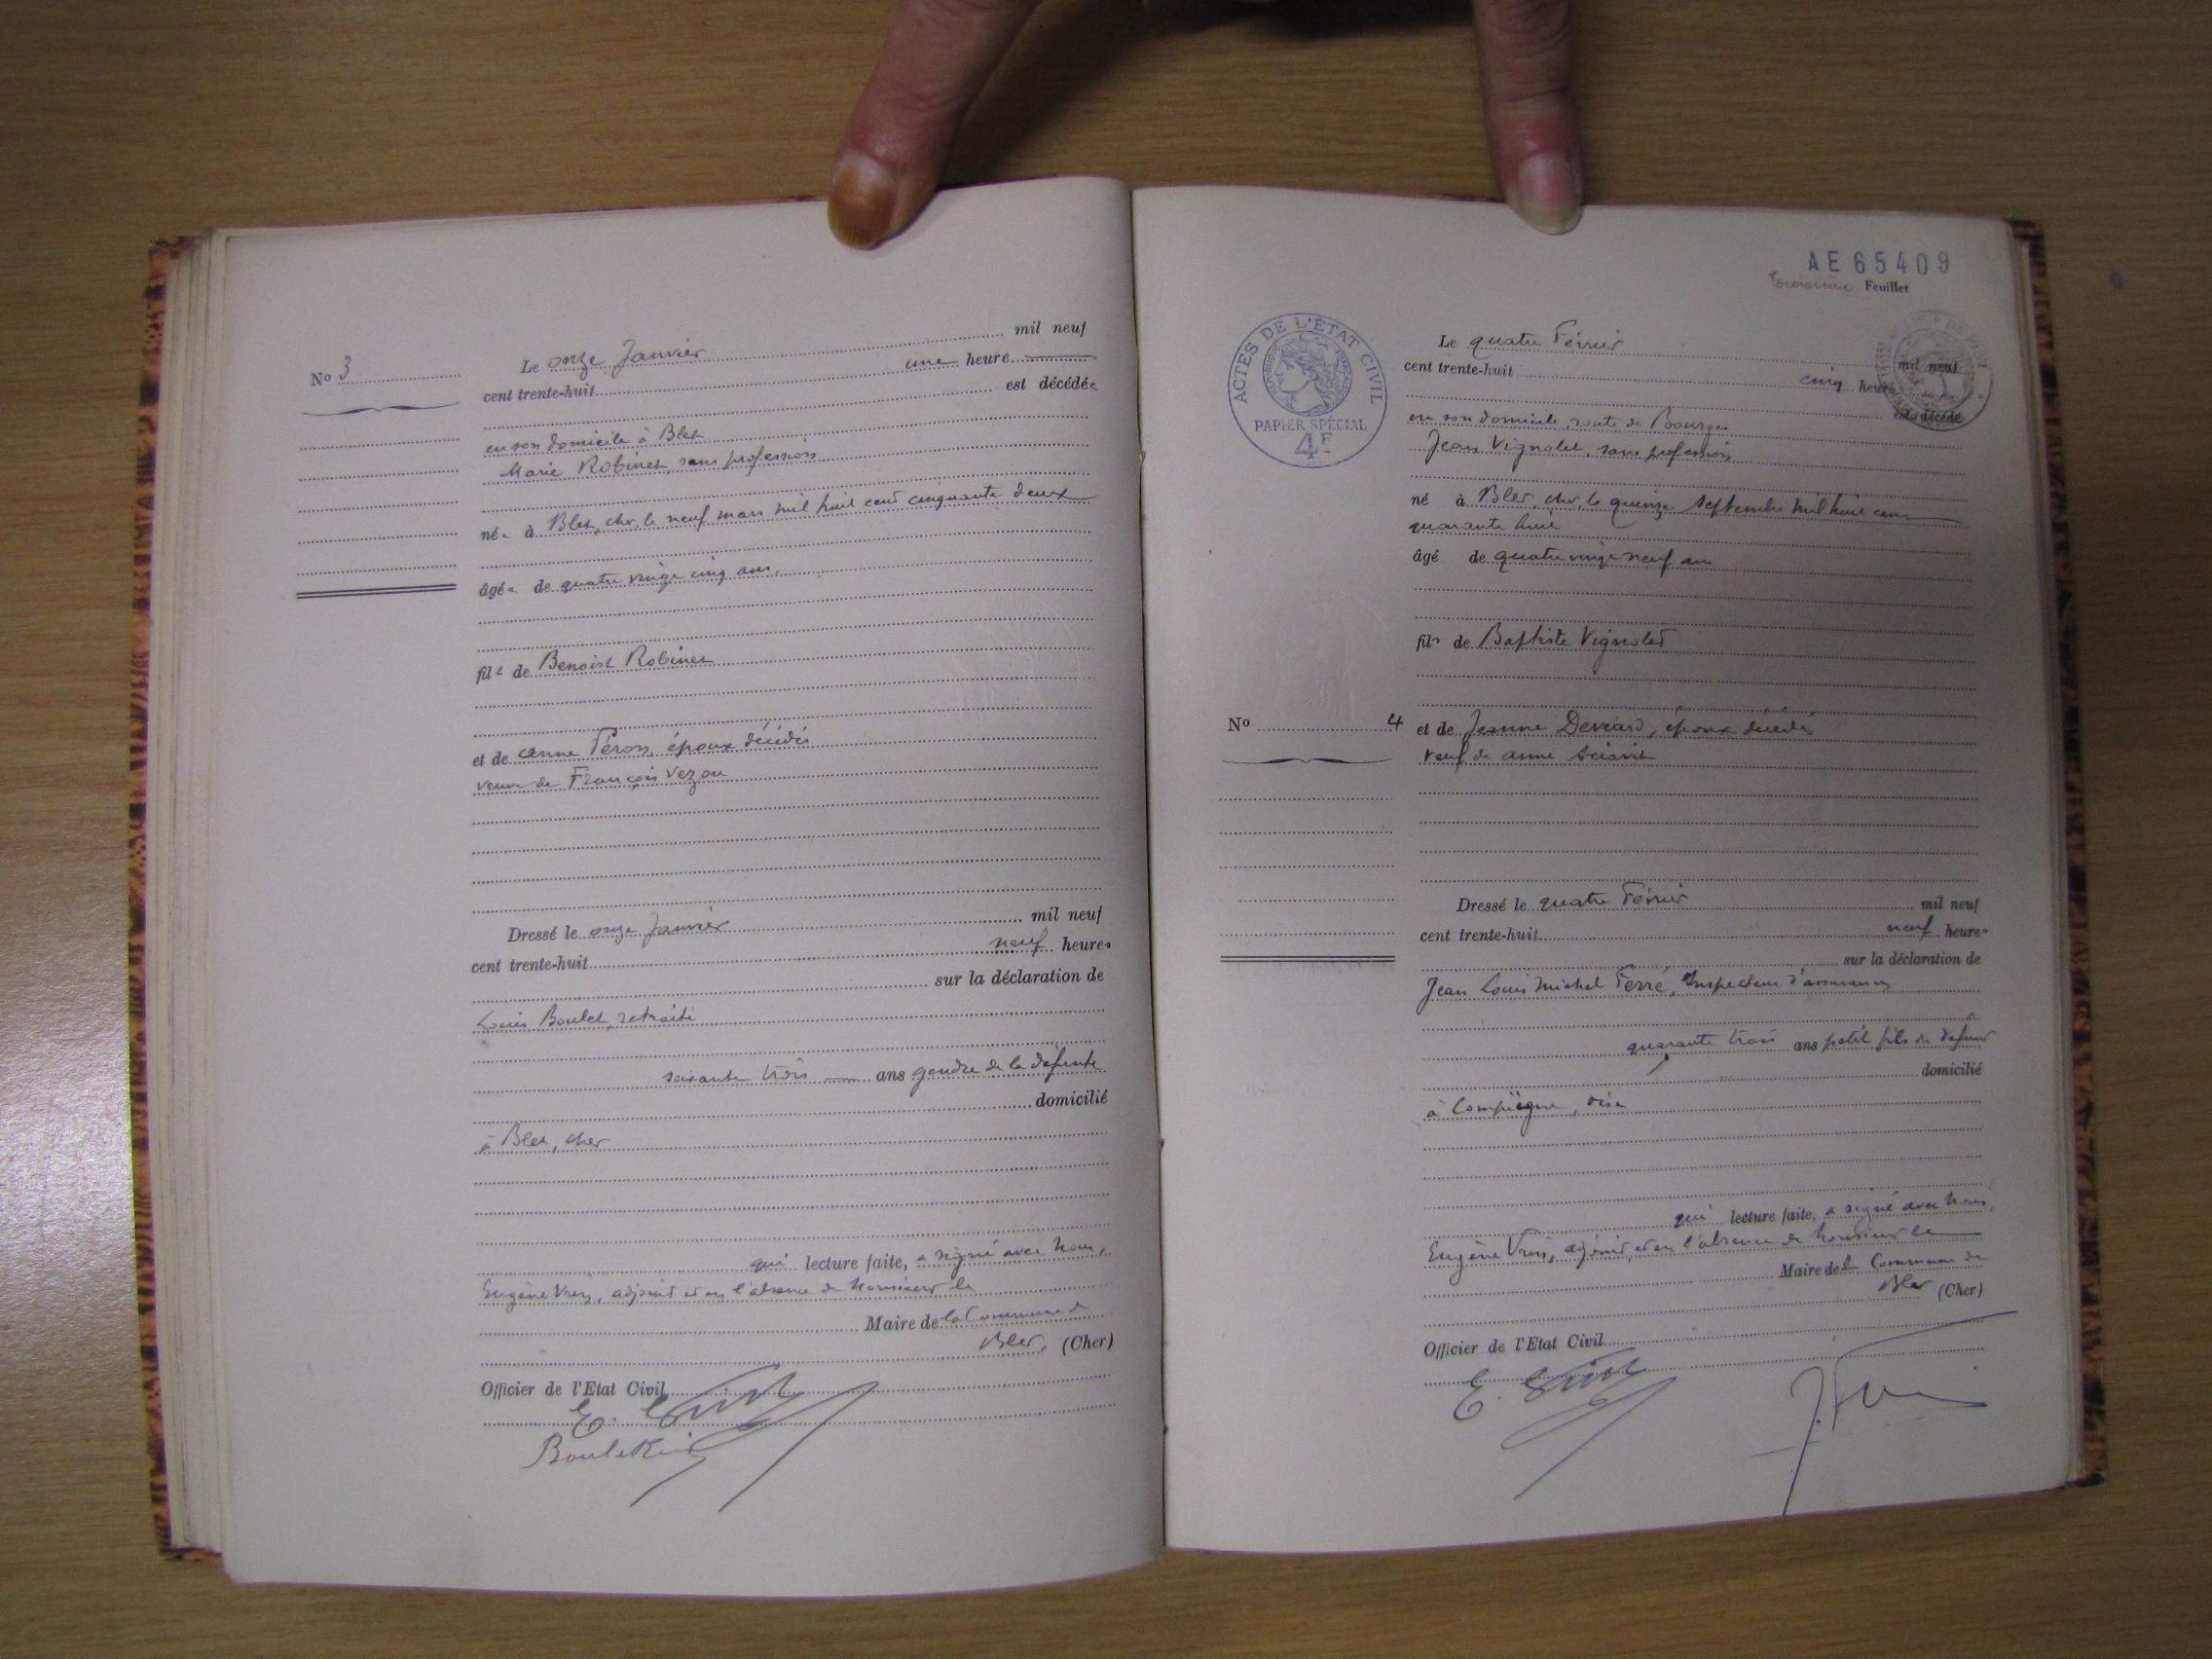 No 3
Le onze Janvier mil neuf
cent trente-huit une heure
est décédée
en son domicile à Blet
Marie Robinet, sans profession
née à Blet, cher, le neuf mars mil huit cent cinquante deux
âgée de quatre vingt cinq ans,
fille de Benoist Robinet
et de anne Péron, époux décédés
veuve de François Vezon
Dressé le onze Janvier mil neuf
cent trente-huit neuf heures
sur la déclaration de
Louis Boulet, retraité
soixante trois ans gendre de la défunte
domicilié
à Blet, cher
qui lecture faite, a signé avec nous,
Eugène, adjoint et en l'absence de Monsieur le
Maire de la Commune de
Blet, (Cher)
Officier de l'Etat Civil
E.
AE 65409
Troisième Feuillet
ACTES DE L'ÉTAT CIVIL
PAPIER SPÉCIAL
4F
Le quatre Février mil neuf
cent trente-huit cinq heures
est décédé
en son domicile route de Bourges
Jean Vignolet, sans profession
né à Blet, cher, le quinze septembre mil huit cent
quarante huit
âgé de quatre vingt neuf ans
fils de Baptiste Vignolet
No 4
et de Jeanne, époux décédés
veuf de anne
Dressé le quatre Février mil neuf
cent trente-huit neuf heures
sur la déclaration de
Jean Louis Michel Ferré, Inspecteur d'assurances
quarante trois ans petit fils du défunt
domicilié
à Compiègne, oise
qui lecture faite, a signé avec nous,
Eugène, adjoint, et en l'absence de Monsieur le
Maire de la Commune de
Blet (Cher)
Officier de l'Etat Civil
E.